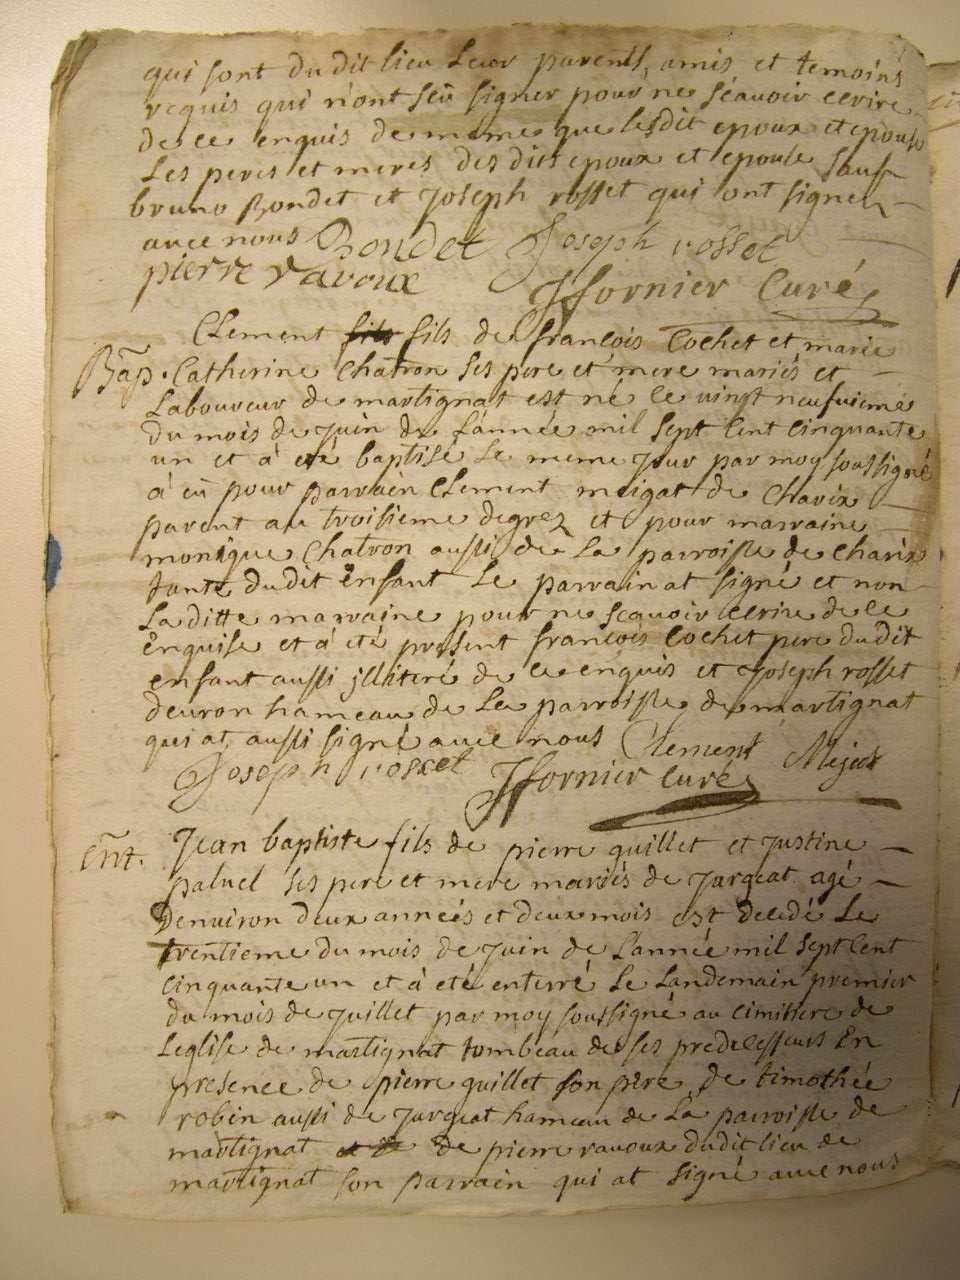 qui sont du dit lieu leur parents, amis et temoins
requis qui n'ont sçu signer pour ne sçauoir ecrire
de ce enquis de meme que lesdit epoux et epouse
Les peres et meres des dits epoux et epouse sauf
bruno Bondet et joseph rosset qui ont signez
auec nous Bondet Joseph rosset
pierre ravoux Jfornier Curé
Clement fils fils de françois Cochet et marie
Bap. Catherine Chatron ses pere et mere mariés et
Laboureur de martignat est né le vingt neufuieme
du mois de juin de l'année mil sept cent cinquante
un et à eté baptisé le meme jour par moy soussigné
à eü pour parrain Clement meigat de Charix
parent au troisieme degrez et pour marraine
monique Chatron aussi de la parroisse de charix
tante dudit enfant le parrain at signé et non
la ditte marraine pour ne sçauoir ecrire de ce
enquise et à eté present françois Cochet pere dudit
enfant aussi jlliteré de ce enquis et joseph rosset
deuron hameau de la parroisse de martignat
qui at aussi signé auec nous Clement Mejat
Joseph rosset Jfornier curé
Ent. Jean baptiste fils de pierre guillet et justine
paluel ses pere et mere mariés de jargeat agé
denuiron deux années et deux mois est decedé le
trentieme du mois de juin de l'année mil sept cent
cinquante un et à eté enterré le landemain premier
du mois de juillet par moy soussigné au cimitiere de
Leglise de martignat tombeau de ses predecesseurs En
presence de pierre guillet son pere de timothée
robin aussi de jargeat hameau de la parroisse de
martignat de pierre rauoux dudit lieu de
martignat son parrain qui at signé auec nous